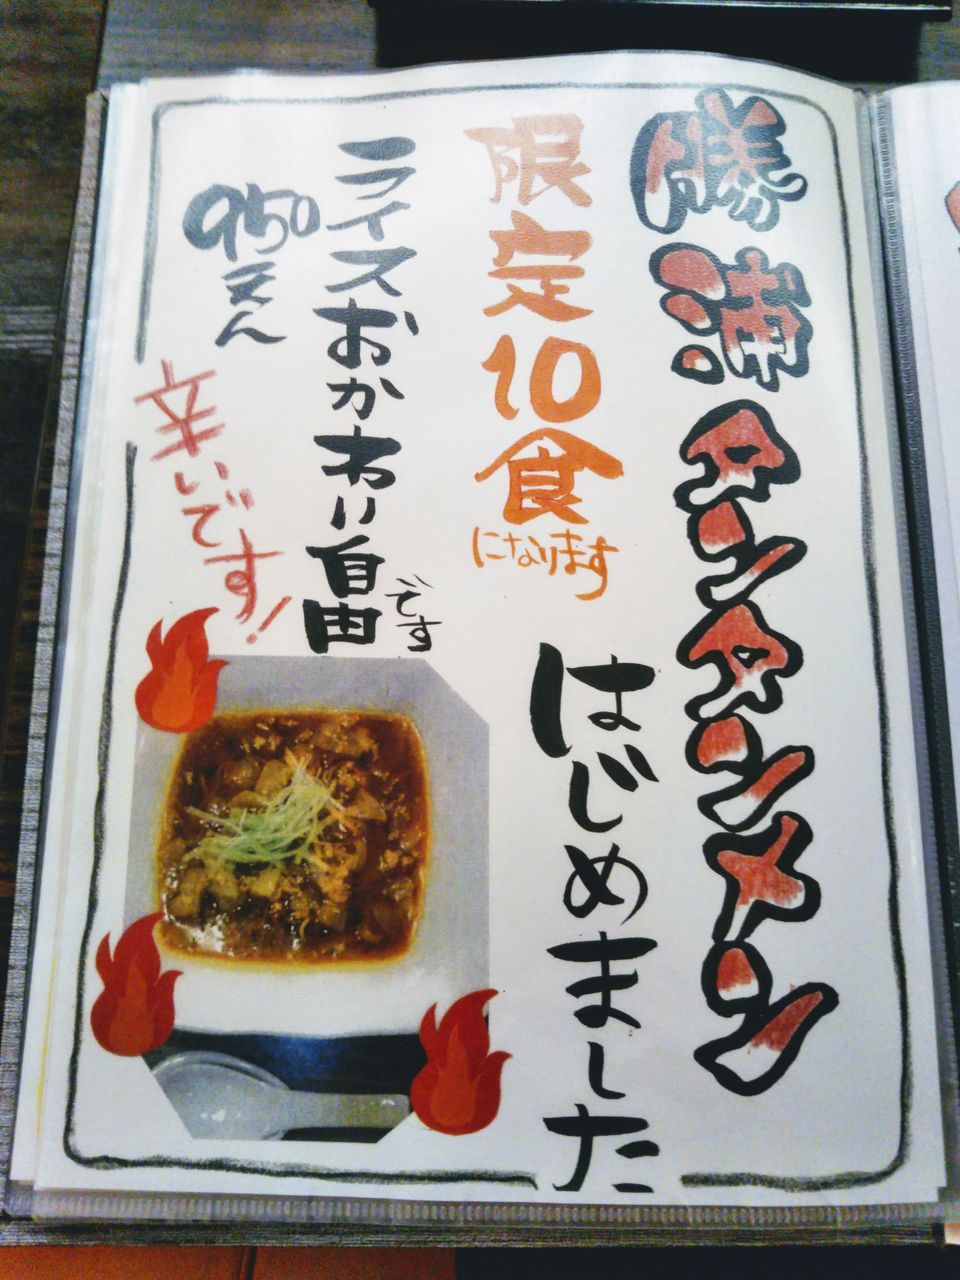 勝浦タンタンメン
はじめました
限定10食になります
ライスおかわり自由です
950えん
辛いです!